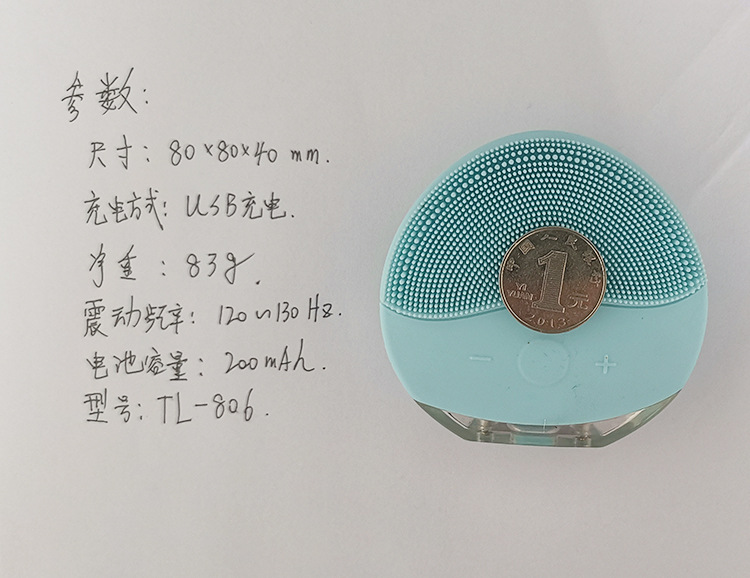 参数:
尺寸: 80×80×40 mm.
充电方式: USB充电.
净重: 83g.
震动频率: 120~130 Hz.
电池容量: 200mAh.
型号: TL-806.
中国人民银行
1
YI
YUAN
元
2013
− +